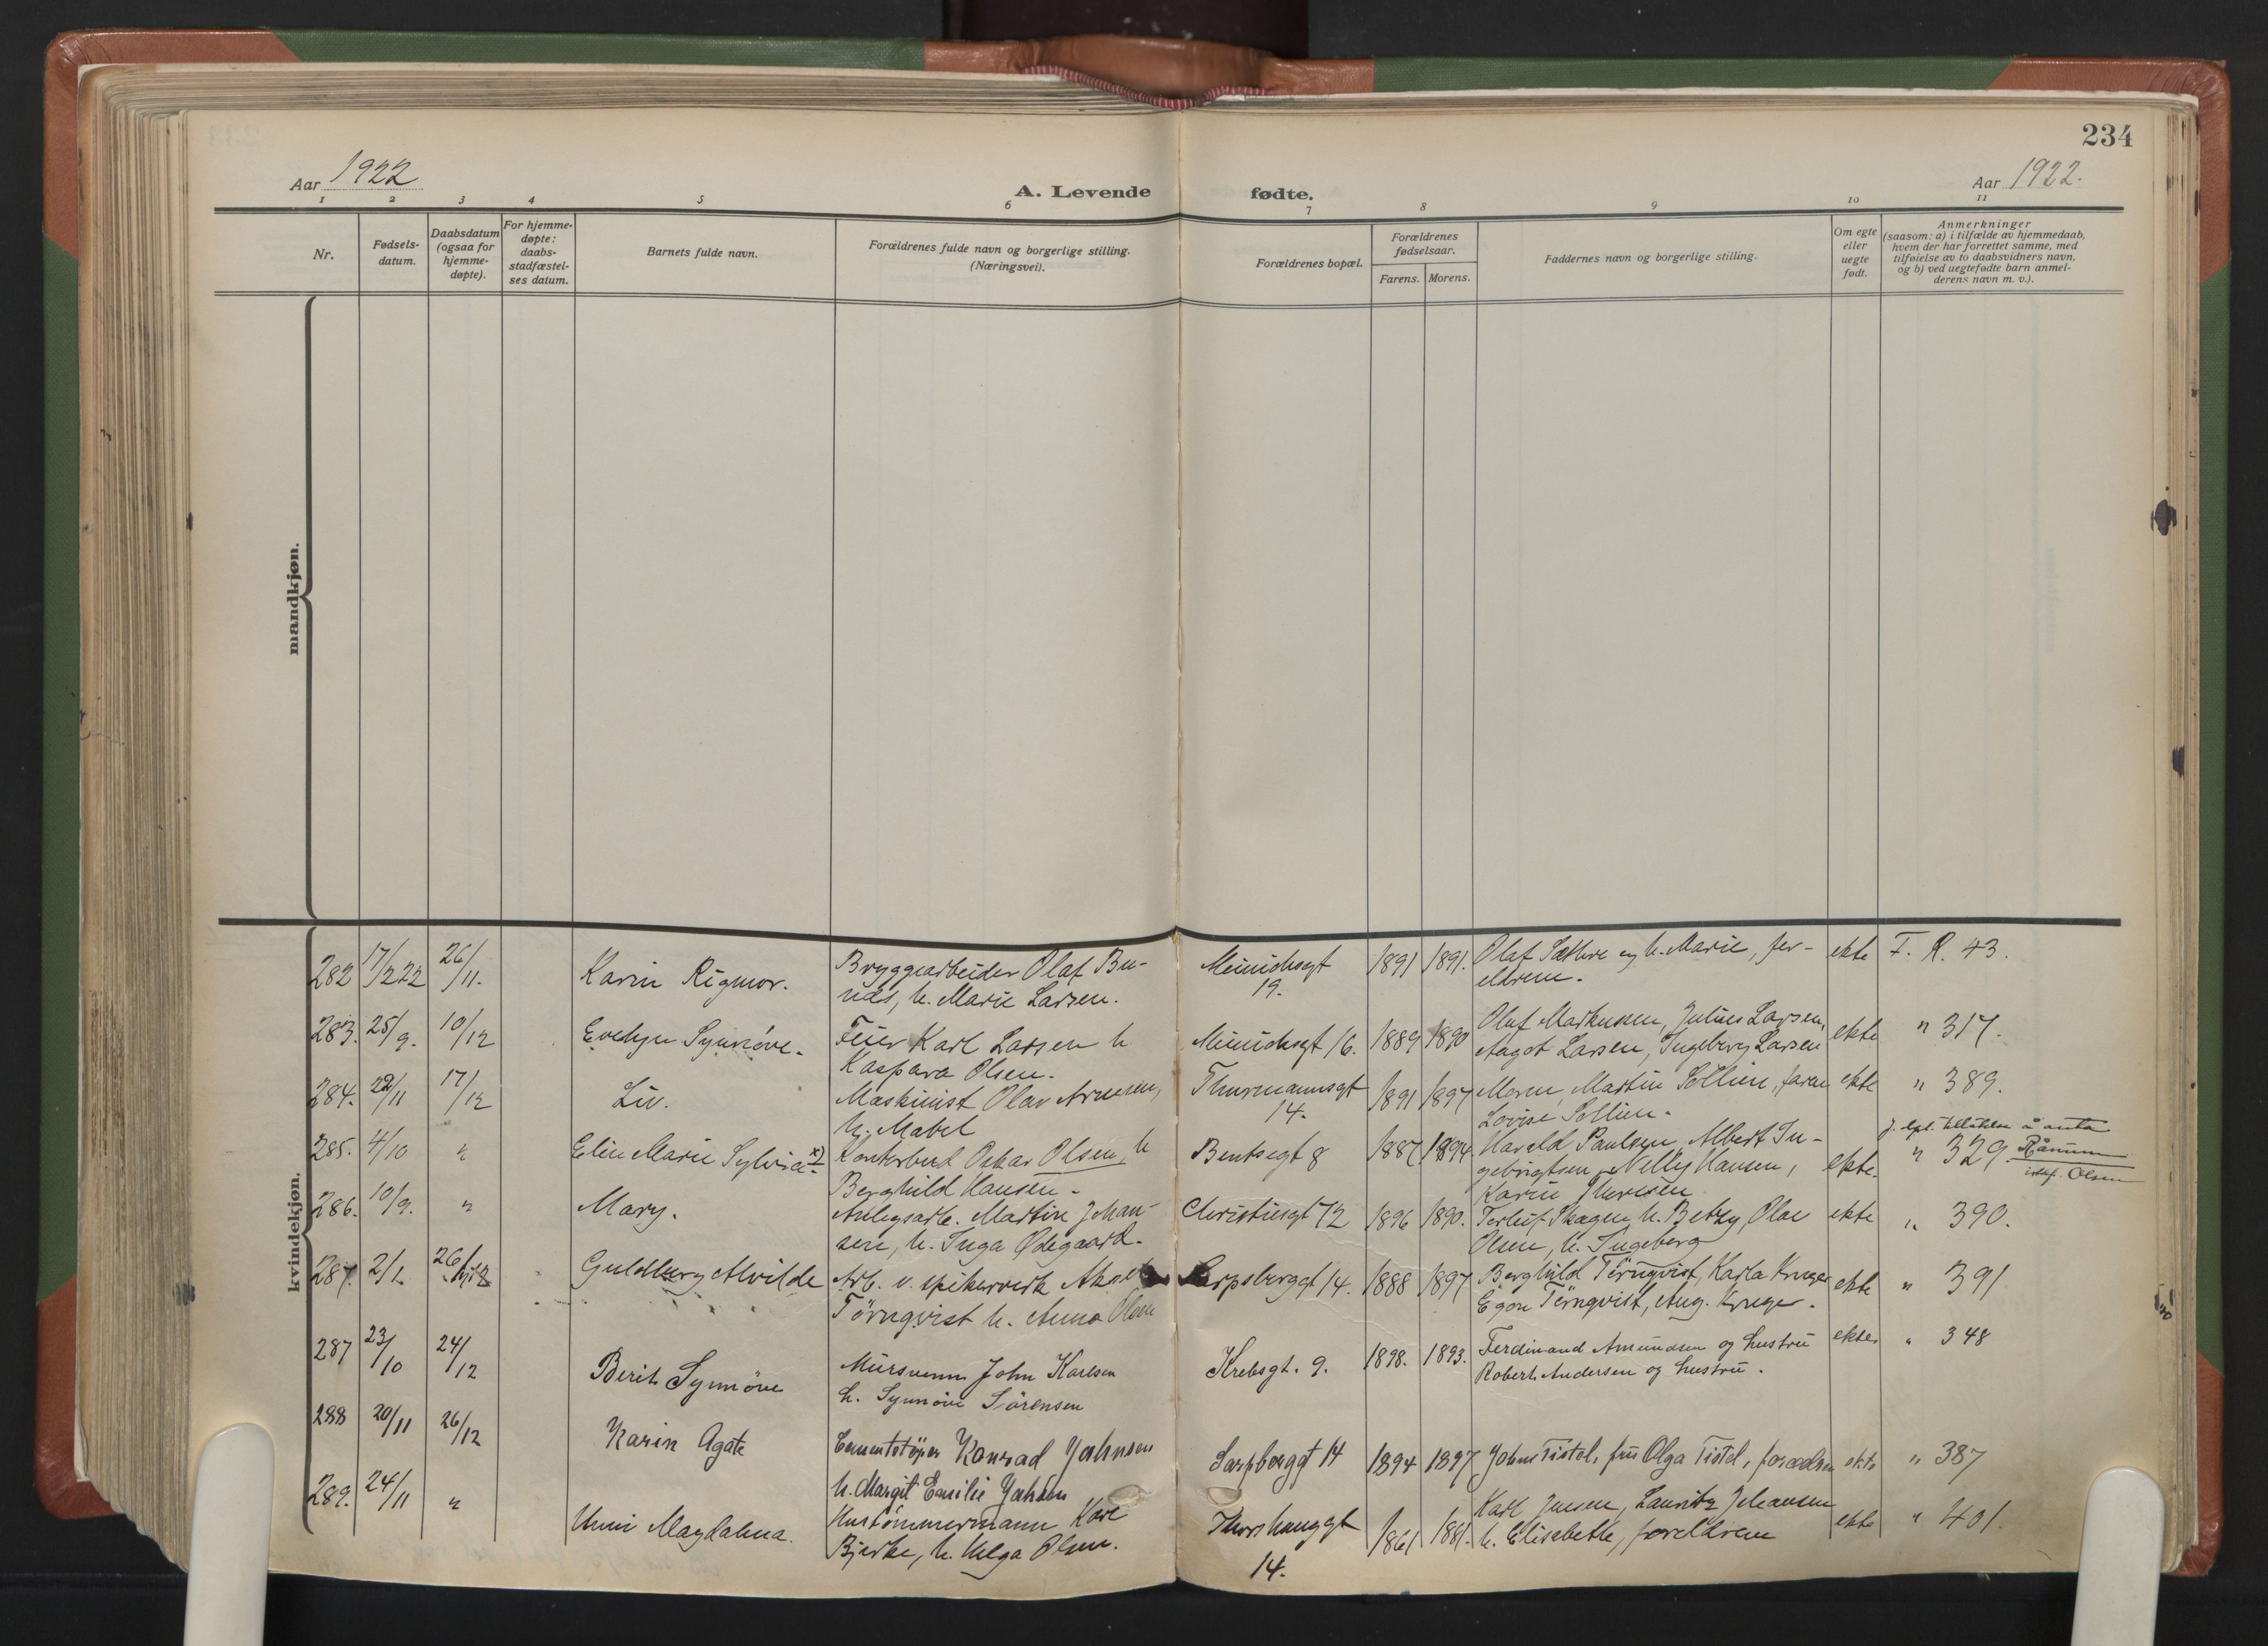 234
Aar 1922
A. Levende fødte.
Aar 1922.
1 2 3 4 5 6 7 8 9 10 11
Nr.
Fødsels-
datum.
Daabsdatum
(ogsaa for
hjemme-
døpte).
For hjemme-
døpte:
daabs-
stadfæstel-
ses datum.
Barnets fulde navn.
Forældrenes fulde navn og borgerlige stilling.
(Næringsvei).
Forældrenes bopæl.
Forældrenes
fødselsaar.
Farens. Morens.
Faddernes navn og borgerlige stilling.
Om egte
eller
uegte
født.
Anmerkninger
(saasom: a) i tilfælde av hjemmedaab,
hvem der har forrettet samme, med
tilføielse av to daabsvidners navn,
og b) ved uegtefødte barn anmel-
derens navn m. v.).
mandkjøn.
kvindekjøn.
282 17/2 22 26/11. Karin Rigmor. Bryggearbeider Olaf Bu- Minichsgt 1891 1891. Olaf Sæthre og h. Marie, for- ekte F. R. 43.
nås, h. Marie Larsen. 19. eldrene.
283. 25/9. 10/12 Evelyn Synnöve. Feier Karl Larsen h Minichsgt 16. 1889 1890 Oluf Markussen, Julius Larsen, ekte " 317.
Kaspara Olsen. Aagot Larsen, Ingeberg Larsen
284. 22/11 17/12 Liv. Maskinist Olav Arnesen, Thurmannsgt 1891 1897 Moren, Martin Sollien, faren ekte " 389.
h. Mabel 14. Lovise Sollien.
285. 4/10 " Elin Marie Sylvia x) Kontorbud Oskar Olsen, h Bentsegt 8 1887 1894. Harald Paulsen, Albert In- ekte. " 329 Rånum
Berghild Hansen. gebrigtsen, Nelly Hansen, istf. Olsen
Karin Thoresen
286. 10/9. " Mary. Anlegsarb. Martin Johan- Christiesgt 12 1896 1890. Torleif Skagen h. Betzy, Olae ekte " 390.
sen, h. Inga Ødegaard. Olsen, h. Ingeberg
287. 2/1 26/12 Guldborg Alvilde Arb. v. spikerverk Sarpsborggt 14. 1888 1897 Berghild Törnqvist, Karla Kruger ekte " 391
Törnqvist h. Anna Olsen Egon Törnqvist, Aug. Kruger.
287 23/10 24/12 Berit Synnöve Mursvenn John Karlsen Krebsgt. 9. 1898. 1893. Ferdinand Amundsen og hustru ekte " 348
h. Synnöve Sörensen Robert Andersen og hustru.
288 20/11 26/12 Karin Agate Cementstöper Konrad Jahnsen Sarpborggt 14 1894 1897 Johns Tistel, fru Olga Tistel, forældren ekte " 387
h. Margit Emilie Jahnsen
289. 24/11 " Unni Magdalena. Hustömmermann Karl Thorshauggt 1861 1881. Karl Jensen, Lauritz Johansen ekte " 401.
Bjerke, h. Helga Olsen. 14. h. Elisabeth, foreldrene